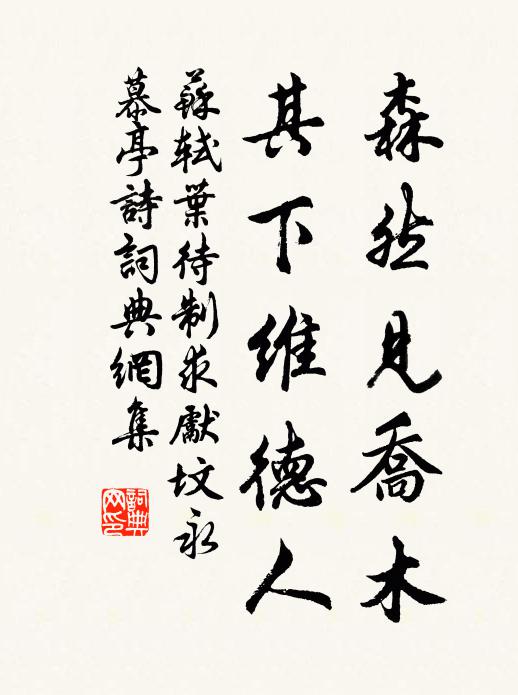 森然見喬木
其下維德人
蘇軾葉待制求獻墳永
慕亭詩詞典網集
詞典
网印